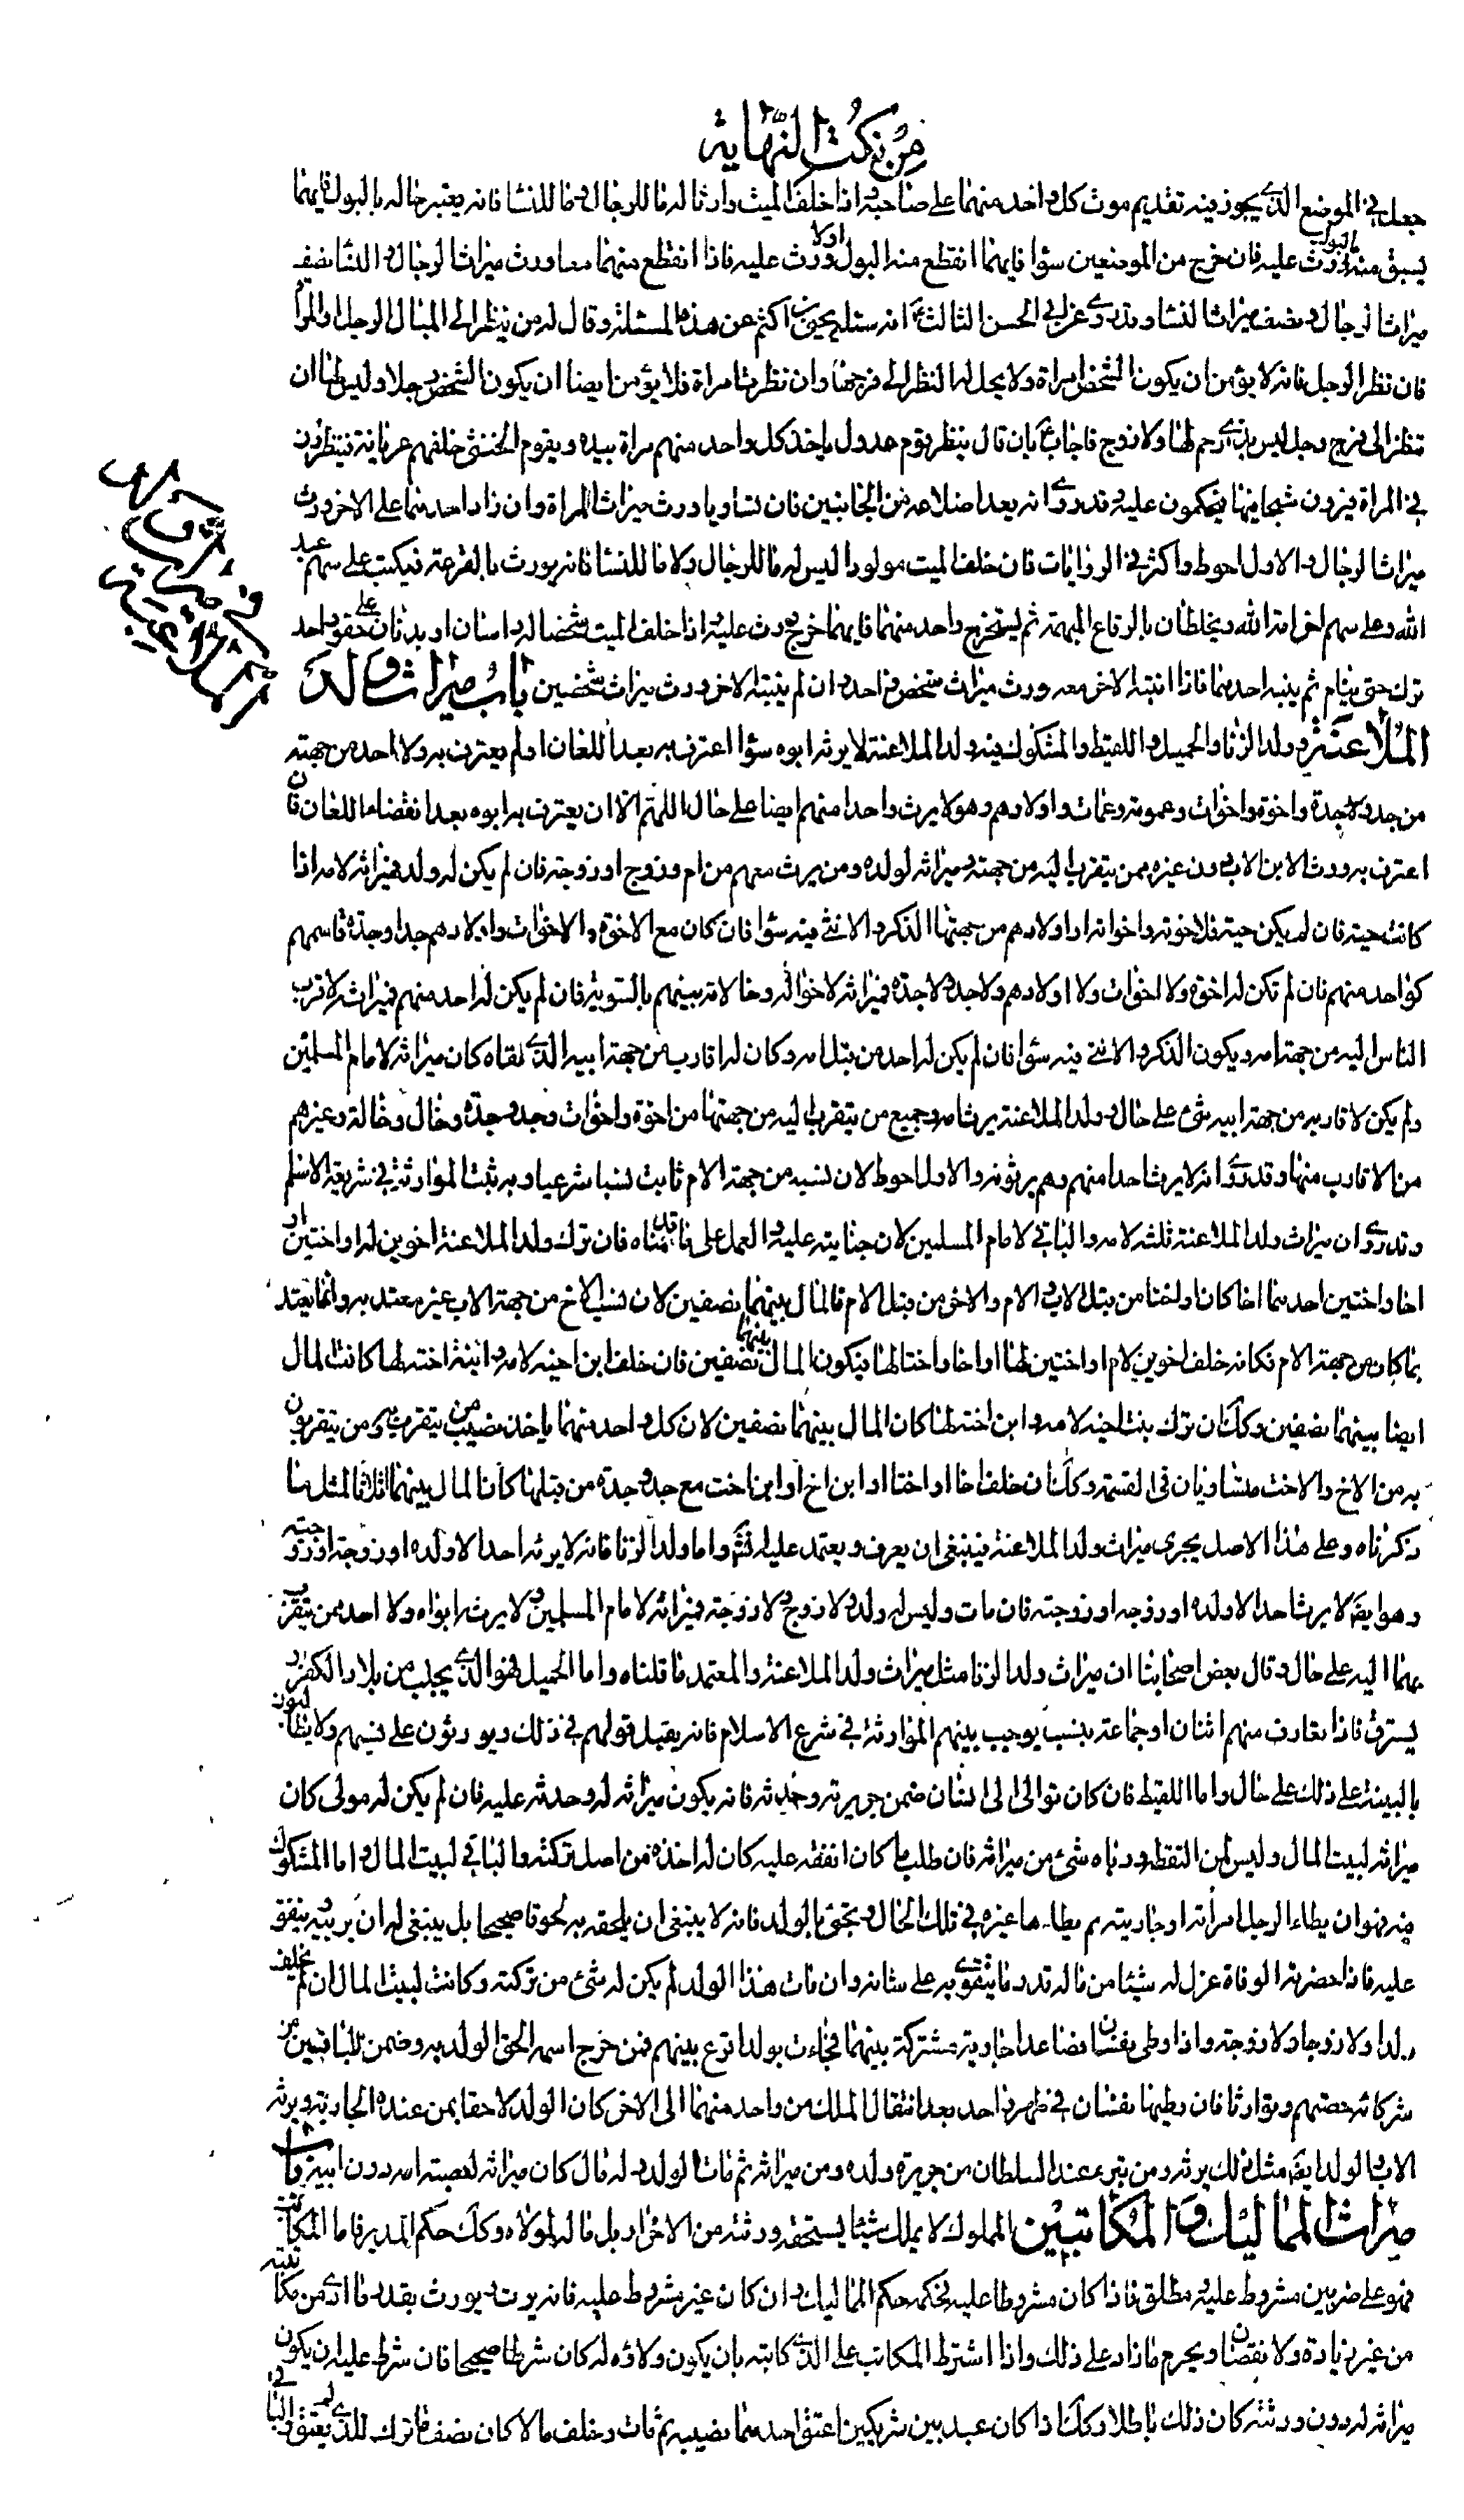 من نكت النهاية
جعل في الموضع الذي يجوز فيه تقديم موت كل واحد منهما على صاحبه و اذا خلف الميت وارثا له ما للرجال و ما للنسا فانه يعتبر حاله بالبول فايهما
يسبق منه البول ورث عليه فان خرج من الموضعين سوا فايهما انقطع منه البول اولا ورث عليه فاذا انقطع منهما معا ورث ميراث الرجال و النسا نصف
ميراث الرجال و نصف ميراث النسا و قد روى عن ابي الحسن الثالث انه سئله يحيى بن اكثم عن هذه المسئلة و قال له من ينظر الى المبال الرجل او المراة
فان نظر الرجل فانه لا يؤمن ان يكون الشخص امراة و لا يحل له النظر الى فرجها و ان نظرت امراة فلا يؤمن ايضا ان يكون الشخص رجلا و ليس لها ان
تنظر الى فرج رجل ليس بذي رحم لها و لا زوج فاجاب بان قال ينظر قوم عدول ياخذ كل واحد منهم مراة بيده و يقوم الخنثى خلفهم عريانة فينظرون
في المراة فيرون شبحا فيها فيحكمون عليه و قد روى انه يعد اضلاعه من الجانبين فان تساويا ورث ميراث المراة و ان زاد احدهما على الاخر ورث
ميراث الرجال و الاول احوط و اكثر في الروايات فان خلف الميت مولودا ليس له ما للرجال و لا ما للنسا فانه يورث بالقرعة فيكتب على سهم عبد
الله و على سهم اخر امة الله و يخلطان بالرقاع المبهمة ثم يستخرج واحد منهما فايهما خرج ورث عليه و اذا خلف الميت شخصا له راسان او بدنان على حقو واحد
ترك حتى ينام ثم ينبه احدهما فاذا انتبه الاخر معه ورث ميراث شخص واحد و ان لم ينتبه الاخر ورث ميراث شخصين باب ميراث ولد
الملاعنة و ولد الزنا و الحميل و اللقيط و المشكوك فيه ولد الملاعنة لا يرثه ابوه سوا اعترف به بعد اللعان او لم يعترف به و لا احد من جهته
من جد و لا جدة و اخوة و اخوات و عمومة و عمات و اولادهم و هو لا يرث واحدا منهم ايضا على حال اللهم الا ان يعترف به ابوه بعد انقضاء اللعان فان
اعترف به ورث الابن الاب دون غيره ممن يتقرب اليه من جهته و ميراثه لولده و من يرث معهم من ام و زوج او زوجة فان لم يكن له ولد فميراثه لامه اذا
كانت حية فان لم يكن حية فلاخوته و اخواته او اولادهم من جهتها الذكر و الانثى فيه سوا فان كان مع الاخوة و الاخوات و اولادهم جد او جدة قاسمهم
كواحد منهم فان لم تكن له اخوة و لا اخوات و لا اولادهم و لا جد و لا جدة فميراثه لاخواله و خالاته بينهم بالسوية فان لم يكن له احد منهم فميراثه لاقرب
الناس اليه من جهة امه و يكون الذكر و الانثى فيه سوا فان لم يكن له احد من قبل امه و كان له اقارب من جهة ابيه الذي نفاه كان ميراثه لامام المسلمين
و لم يكن لاقاربه من جهة ابيه شئ على حال و ولد الملاعنة يرث امه و جميع من يتقرب اليه من جهتها من اخوة و اخوات و جد و جدة و خال و خالة و غيرهم
من الاقارب منها و قد روى انه لا يرث احدا منهم و هم يرثونه و الاول احوط لان نسبه من جهة الام ثابت نسبا شرعيا و به تثبت الموارثة في شريعة الاسلام
و قد روى ان ميراث ولد الملاعنة ثلثه لامه و الباقي لامام المسلمين لان جنايته عليه و العمل على ما قدمناه فان ترك ولد الملاعنة اخوين له او اختين او
اخا و اختين احدهما اخا كان او اختا من قبل الاب و الام و الاخر من قبل الام فالمال بينهما نصفين لان نسب الاخ من جهة الاب غير معتد به و انما يعتد
بما كان من جهة الام فكانه خلف اخوين لام او اختين لها او اخا و اختا لها فيكون المال بينهما نصفين فان خلف ابن اخيه لامه و ابنة اخته لها كانت المال
ايضا بينهما نصفين و كك ان ترك بنت اخيه لامه و ابن اخته لها كان المال بينهما نصفين لان كل واحد منهما ياخذ نصيب من يتقرب به و من يتقربون
به من الاخ و الاخت متساويان في القسمة و كك ان خلف اخا او اختا او ابن اخ او ابن اخت مع جد و جدة من قبلها كان المال بينهما اثلاثا لمثل ما
ذكرناه و على هذا الاصل يجرى ميراث ولد الملاعنة فينبغي ان يعرف و يعتمد عليه انش و اما ولد الزنا فانه لا يورثه احدا الا ولده او زوجه او زوجته
و هو ايض لا يرث احدا الا ولده او زوجه او زوجته فان مات و ليس له ولد و لا زوج و لا زوجة فميراثه لامام المسلمين و لا يرثه ابواه و لا احد ممن يتقرب
بهما اليه على حال و قال بعض اصحابنا ان ميراث ولد الزنا مثل ميراث ولد الملاعنة و المعتمد ما قلناه و اما الحميل فهو الذي يجلب من بلاد الكفر و
يسترق فاذا تعارف منهم اثنان او جماعة بنسب يوجب بينهم الموارثة في شرع الاسلام فانه يقبل قولهم في ذلك و يورثون على نسبهم و لا يطالبون
بالبينة على ذلك على حال و اما اللقيط فان كان توالى الى انسان ضمن جريرته و حدثه فانه يكون ميراثه له و حدثه عليه فان لم يكن له مولى كان
ميراثه لبيت المال و ليس لمن التقطه و رباه شئ من ميراثه فان طلب ما كان انفقه عليه كان له اخذه من اصل تركته و الباقي لبيت المال و اما المشكوك
فيه فهو ان يطاء الرجل امراته او جاريته ثم يطاءها غيره في تلك الحال و تجئ بالولد فانه لا ينبغي ان يلحقه به لحوقا صحيحا بل ينبغي له ان يربيه و ينفق
عليه فاذا حضرته الوفاة عزل له شيئا من ماله قدر ما يتقوى به على شانه و ان مات هذا الولد لم يكن له شئ من تركته و كانت لبيت المال ان لم يخلف
ولدا و لا زوجا و لا زوجة و اذا وطى نفسان فصاعدا جارية مشتركة بينهما فجاءت بولد اقرع بينهم فمن خرج اسمه الحق الولد به و ضمن للباقين من
شركائه حصتهم و توارثا فان وطيها نفسان في طهر واحد بعد انتقال الملك من واحد منهما الى الاخر كان الولد لاحقا بمن عنده الجارية و يرثه
الاب و الولد ايض مثل ذلك يرثه و من تبرء عند السلطان من جريرة ولده و من ميراثه ثم مات الولد و له مال كان ميراثه لعصبة امه دون ابيه باب
ميراث المماليك و المكاتبين المملوك لا يملك شيئا يستحقه ورثته من الاحرار بل ماله لمولاه و كك حكم المدبر فاما المكاتب
فهو على ضربين مشروط عليه و مطلق فاذا كان مشروطا عليه فحكمه حكم المماليك و ان كان غير مشروط عليه فانه يرث و يورث بقدر ما ادى من مكاتبته
من غير زيادة و لا نقصان و يحرم ما زاد على ذلك و اذا اشترط المكاتب على الذي كاتبه بان يكون ولاؤه له كان شرطا صحيحا فان شرط عليه ان يكون
ميراثه له دون ورثته كان ذلك باطلا و كك اذا كان عبد بين شريكين اعتق احدهما نصيبه ثم مات و خلف مالا كان نصف ما ترك للذي لم يعتق و الباقي